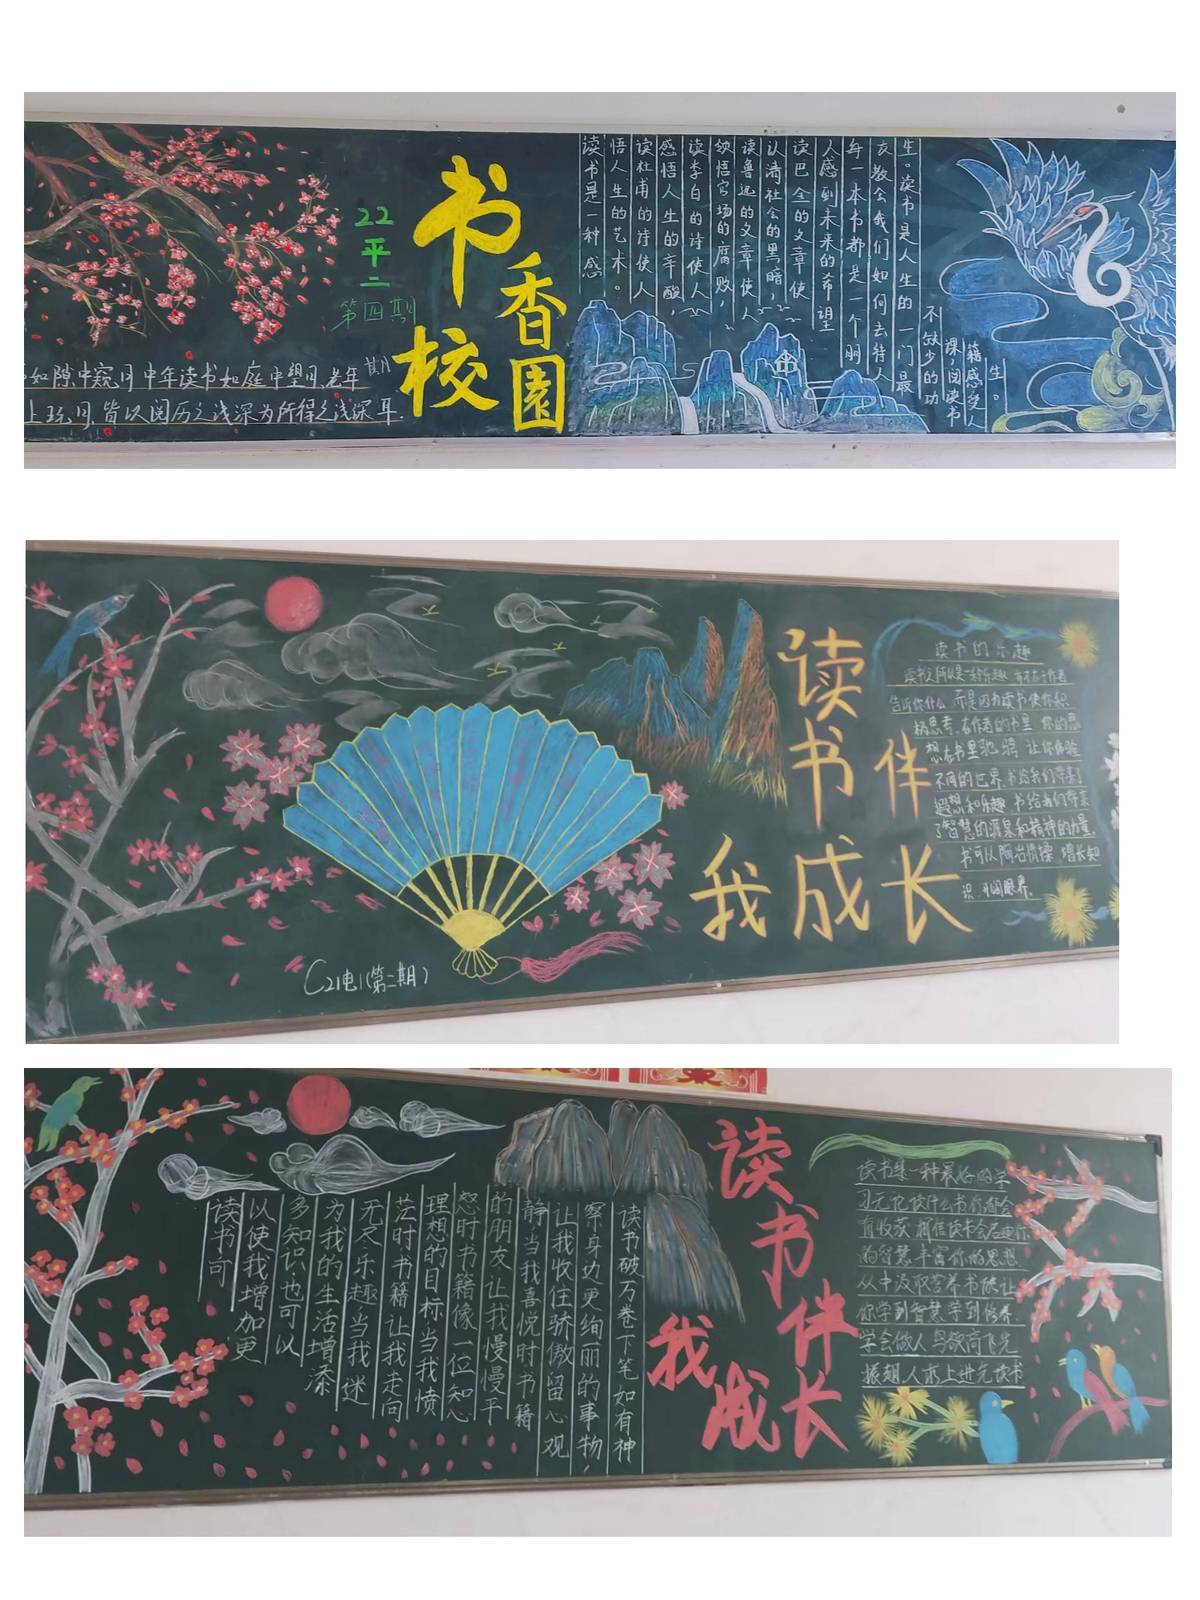 22
平
二
第四期
书香
校园
如隙中窥月中年读书如庭中望月老年
上玩月,皆以阅历之浅深为所得之浅深耳.
读书是一种感
悟人生的艺术。
读杜甫的诗使人
感悟人生的辛酸,
读李白的诗使人
领悟官场的腐败,
读鲁迅的文章使人
认清社会的黑暗,
读巴金的文章使
人感到未来的希望
每一本书都是一个朋
友教会我们如何去待人
生。读书是人生的一门最
不缺少的功
课,阅读书
籍感受人
生。
读书伴
我成长
C21电1(第二期)
读书的乐趣
读书之所以是一种乐趣 并不在于作者
告诉你什么 而是因为读书使你积
极思考,在作者的书里 你的思
想在书里驰骋 让你体验
不同的世界,书给我们带来
遐想和乐趣 书给我们带来
了智慧的源泉和精神的力量.
书可以陶冶情操 增长知
识,开阔眼界.
读书伴
我成长
读书可
以使我增加更
多知识也可以
为我的生活增添
无尽乐趣当我迷
茫时书籍让我走向
理想的目标当我愤
怒时书籍像一位知心
的朋友让我慢慢平
静当我喜悦时书籍
让我收住骄傲留心观
察身边更绚丽的事物,
读书破万卷下笔如有神
读书是一种最好的学
习无论读什么书你都会
有收获 相信读书会
的智慧丰富你的思想
从中汲取营养书能让
你学到智慧学到修养
学会做人 鸟欲高飞先
振翅,人求上进先读书